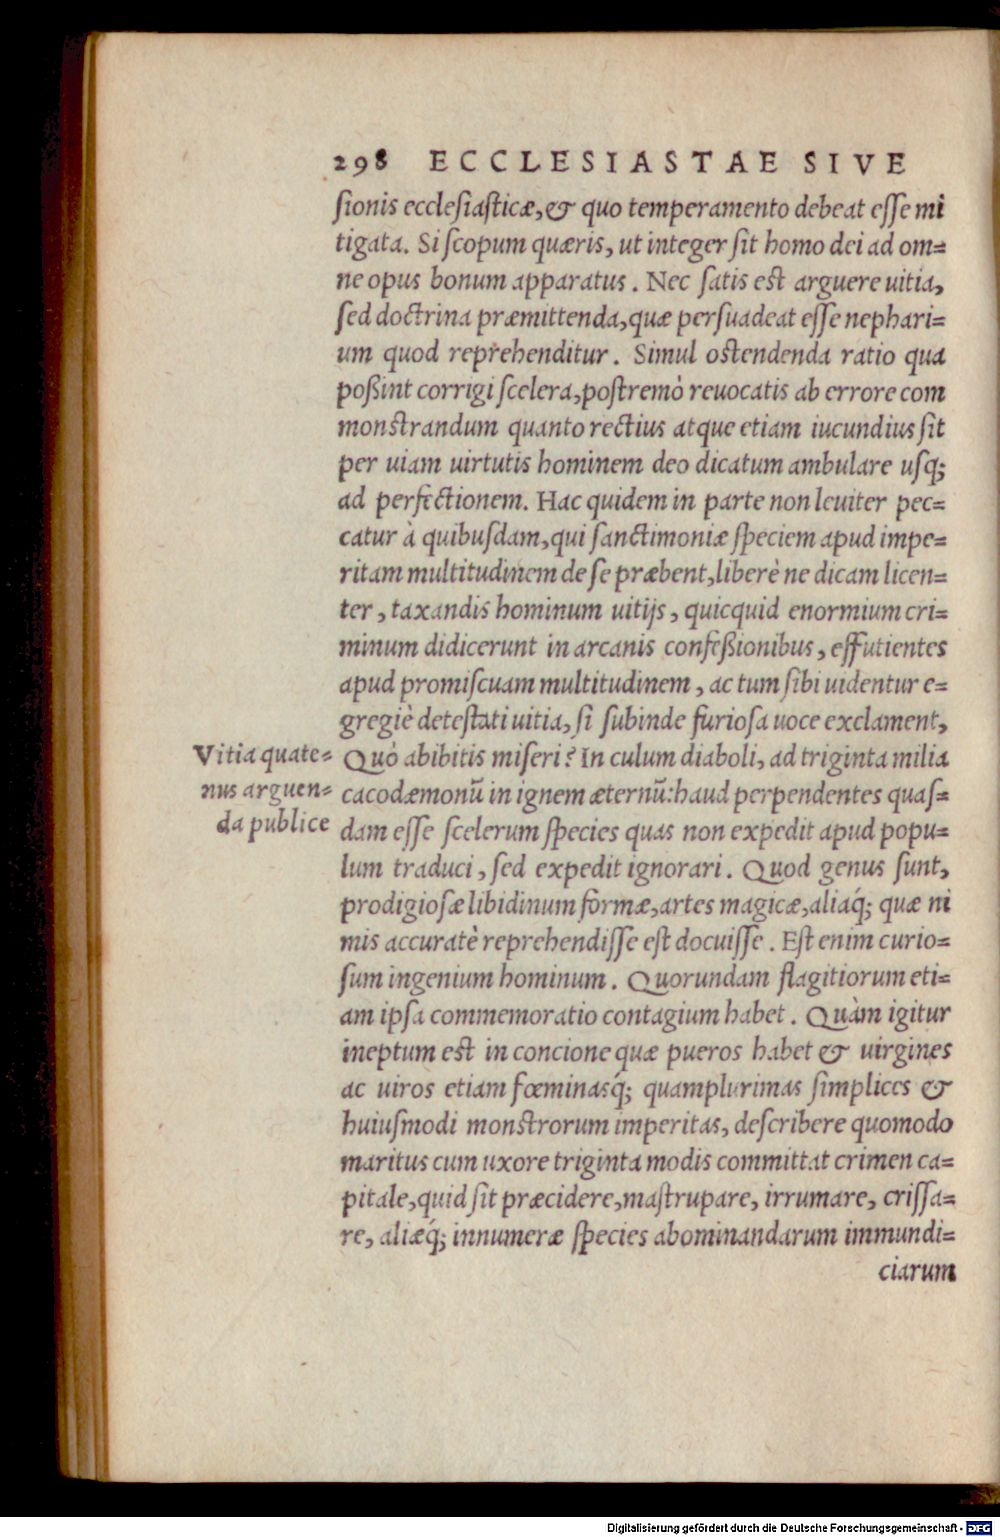 298 ECCLESIASTAE SIVE
ſionis eccleſiaſticæ, & quo temperamento debeat eſſe mi
tigata. Si ſcopum quæris, ut integer ſit homo dei ad om=
ne opus bonum apparatus. Nec ſatis est arguere uitia,
ſed doctrina præmittenda, quæ perſuadeat eſſe nephari=
um quod reprehenditur. Simul ostendenda ratio qua
poßint corrigi ſcelera, poſtremò reuocatis ab errore com
monstrandum quanto rectius atque etiam iucundius ſit
per uiam uirtutis hominem deo dicatum ambulare uſq;
ad perfectionem. Hac quidem in parte non leuiter pec=
catur à quibuſdam, qui ſanctimoniæ ſpeciem apud impe=
ritam multitudinem de ſe præbent, liberè ne dicam licen=
ter, taxandis hominum uitijs, quicquid enormium cri=
minum didicerunt in arcanis confeßionibus, effutientes
apud promiſcuam multitudinem, ac tum ſibi uidentur e=
gregiè deteſtati uitia, ſi ſubinde furioſa uoce exclament,
Vitia quate=
nus arguen=
da publice
Quò abibitis miſeri? In culum diaboli, ad triginta milia
cacodæmonũ in ignem æternũ: haud perpendentes quaſ=
dam eſſe ſcelerum ſpecies quas non expedit apud popu=
lum traduci, ſed expedit ignorari. Quod genus ſunt,
prodigioſæ libidinum formæ, artes magicæ, aliaq́; quæ ni
mis accuratè reprehendiſſe eſt docuiſſe. Eſt enim curio=
ſum ingenium hominum. Quorundam flagitiorum eti=
am ipſa commemoratio contagium habet. Quàm igitur
ineptum est in concione quæ pueros habet & uirgines
ac uiros etiam fœminasq́; quamplurimas ſimplices &
huiuſmodi monstrorum imperitas, deſcribere quomodo
maritus cum uxore triginta modis committat crimen ca=
pitale, quid ſit præcidere, maſtrupare, irrumare, criſſa=
re, aliæq́; innumeræ ſpecies abominandarum immundi=
ciarum
Digitalisierung gefördert durch die Deutsche Forschungsgemeinschaft - DFG